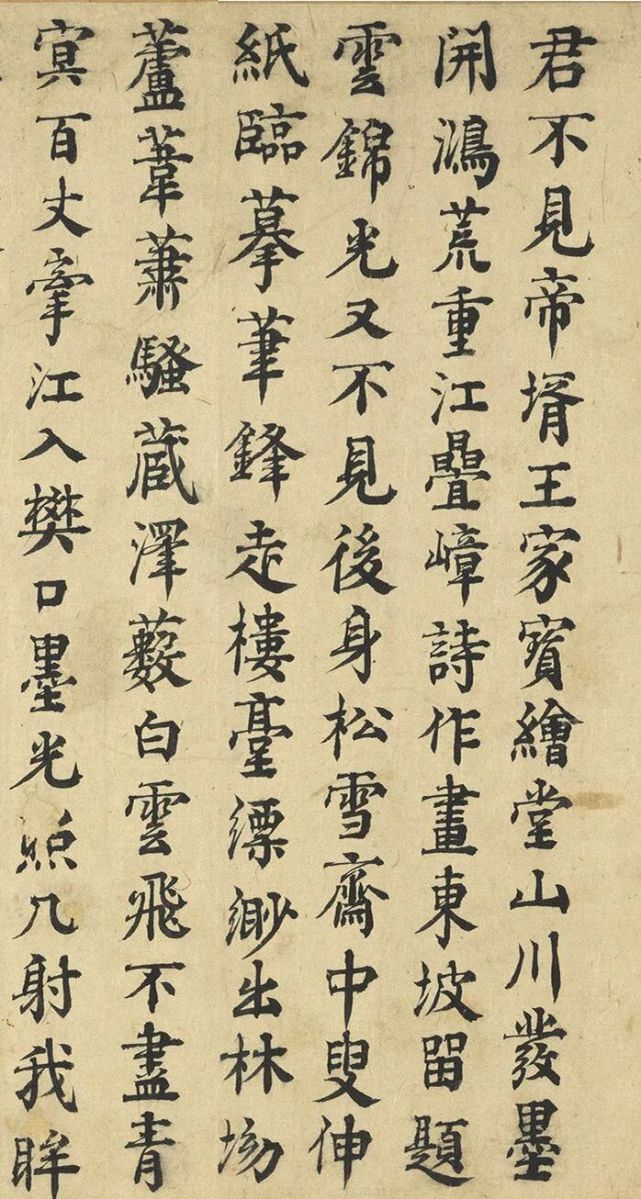 君不見帝壻王家寳繪堂山川發墨
開鴻荒重江疊嶂詩作畫東坡留題
雲錦光又不見後身松雪齋中叟伸
紙臨摹筆鋒走樓臺縹緲出林坳
蘆葦蕭騷蔵澤藪白雲飛不盡青
㝠百丈牽江入樊口墨光照几射我眸